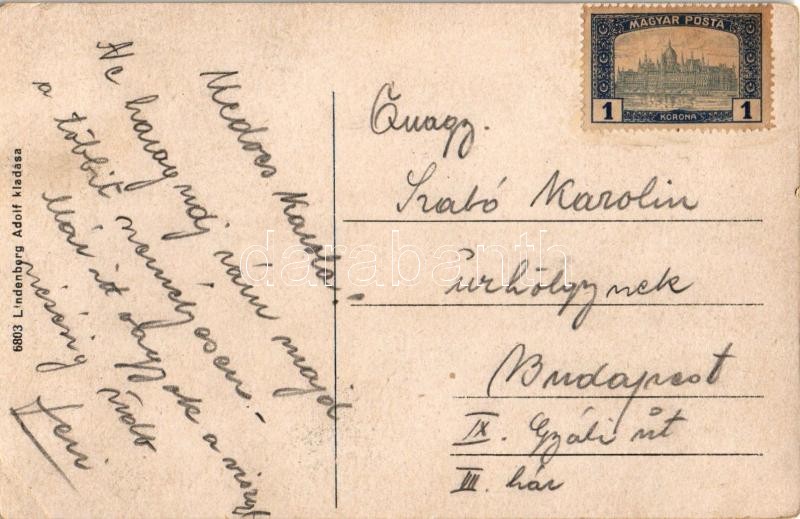 Kedves Karola!
Ne haragudj rám majd
a többit személyesen.-
Már itt vagyok a
Üdv
Feri
6803 Lindenberg Adolf kiadása
MAGYAR POSTA
1 KORONA 1
Szabó Karolin
Úrhölgynek
Budapest
IX. Gyáli út
III. ház
darabanth.com